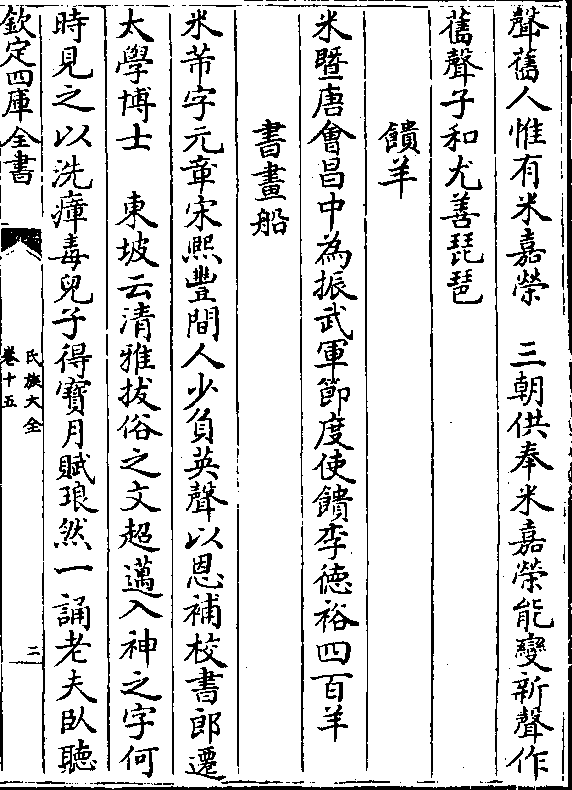 聲舊人惟有米嘉榮　三朝供奉米嘉榮能變新聲作
舊聲子和尤善琵琶
饋羊
米暨唐會昌中為振武軍節度使饋李德裕四百羊
書畫船
米芾字元章宋熙豐間人少負英聲以恩補校書郎遷
太學博士　東坡云清雅拔俗之文超邁入神之字何
時見之以洗瘴毒兒子得寶月賦琅然一誦老夫臥聽
欽定四庫全書
氏族大全
卷十五
二